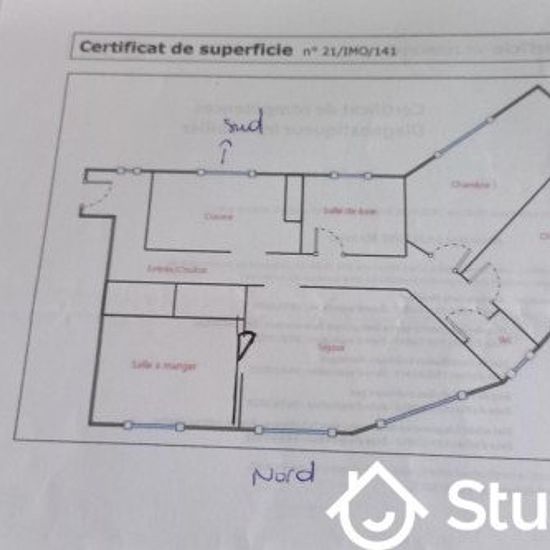 Certificat de superficie n° 21/IMO/141
Sud
Chambre 1
Cuisine
Salle de bain
Entrée/Couloir
Séjour
WC
Salle à manger
Nord
Stu